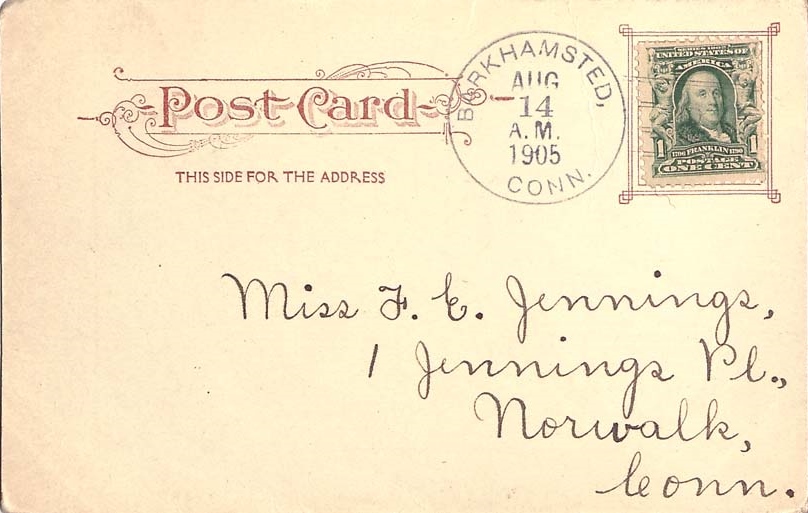 Post Card
THIS SIDE FOR THE ADDRESS
BARKHAMSTED,
AUG
14
A.M.
1905
CONN.
SERIES 1902
UNITED STATES OF
AMERICA
1 1706 FRANKLIN 1790 1
POSTAGE
ONE CENT
Miss F. E. Jennings,
1 Jennings Pl.,
Norwalk,
Conn.